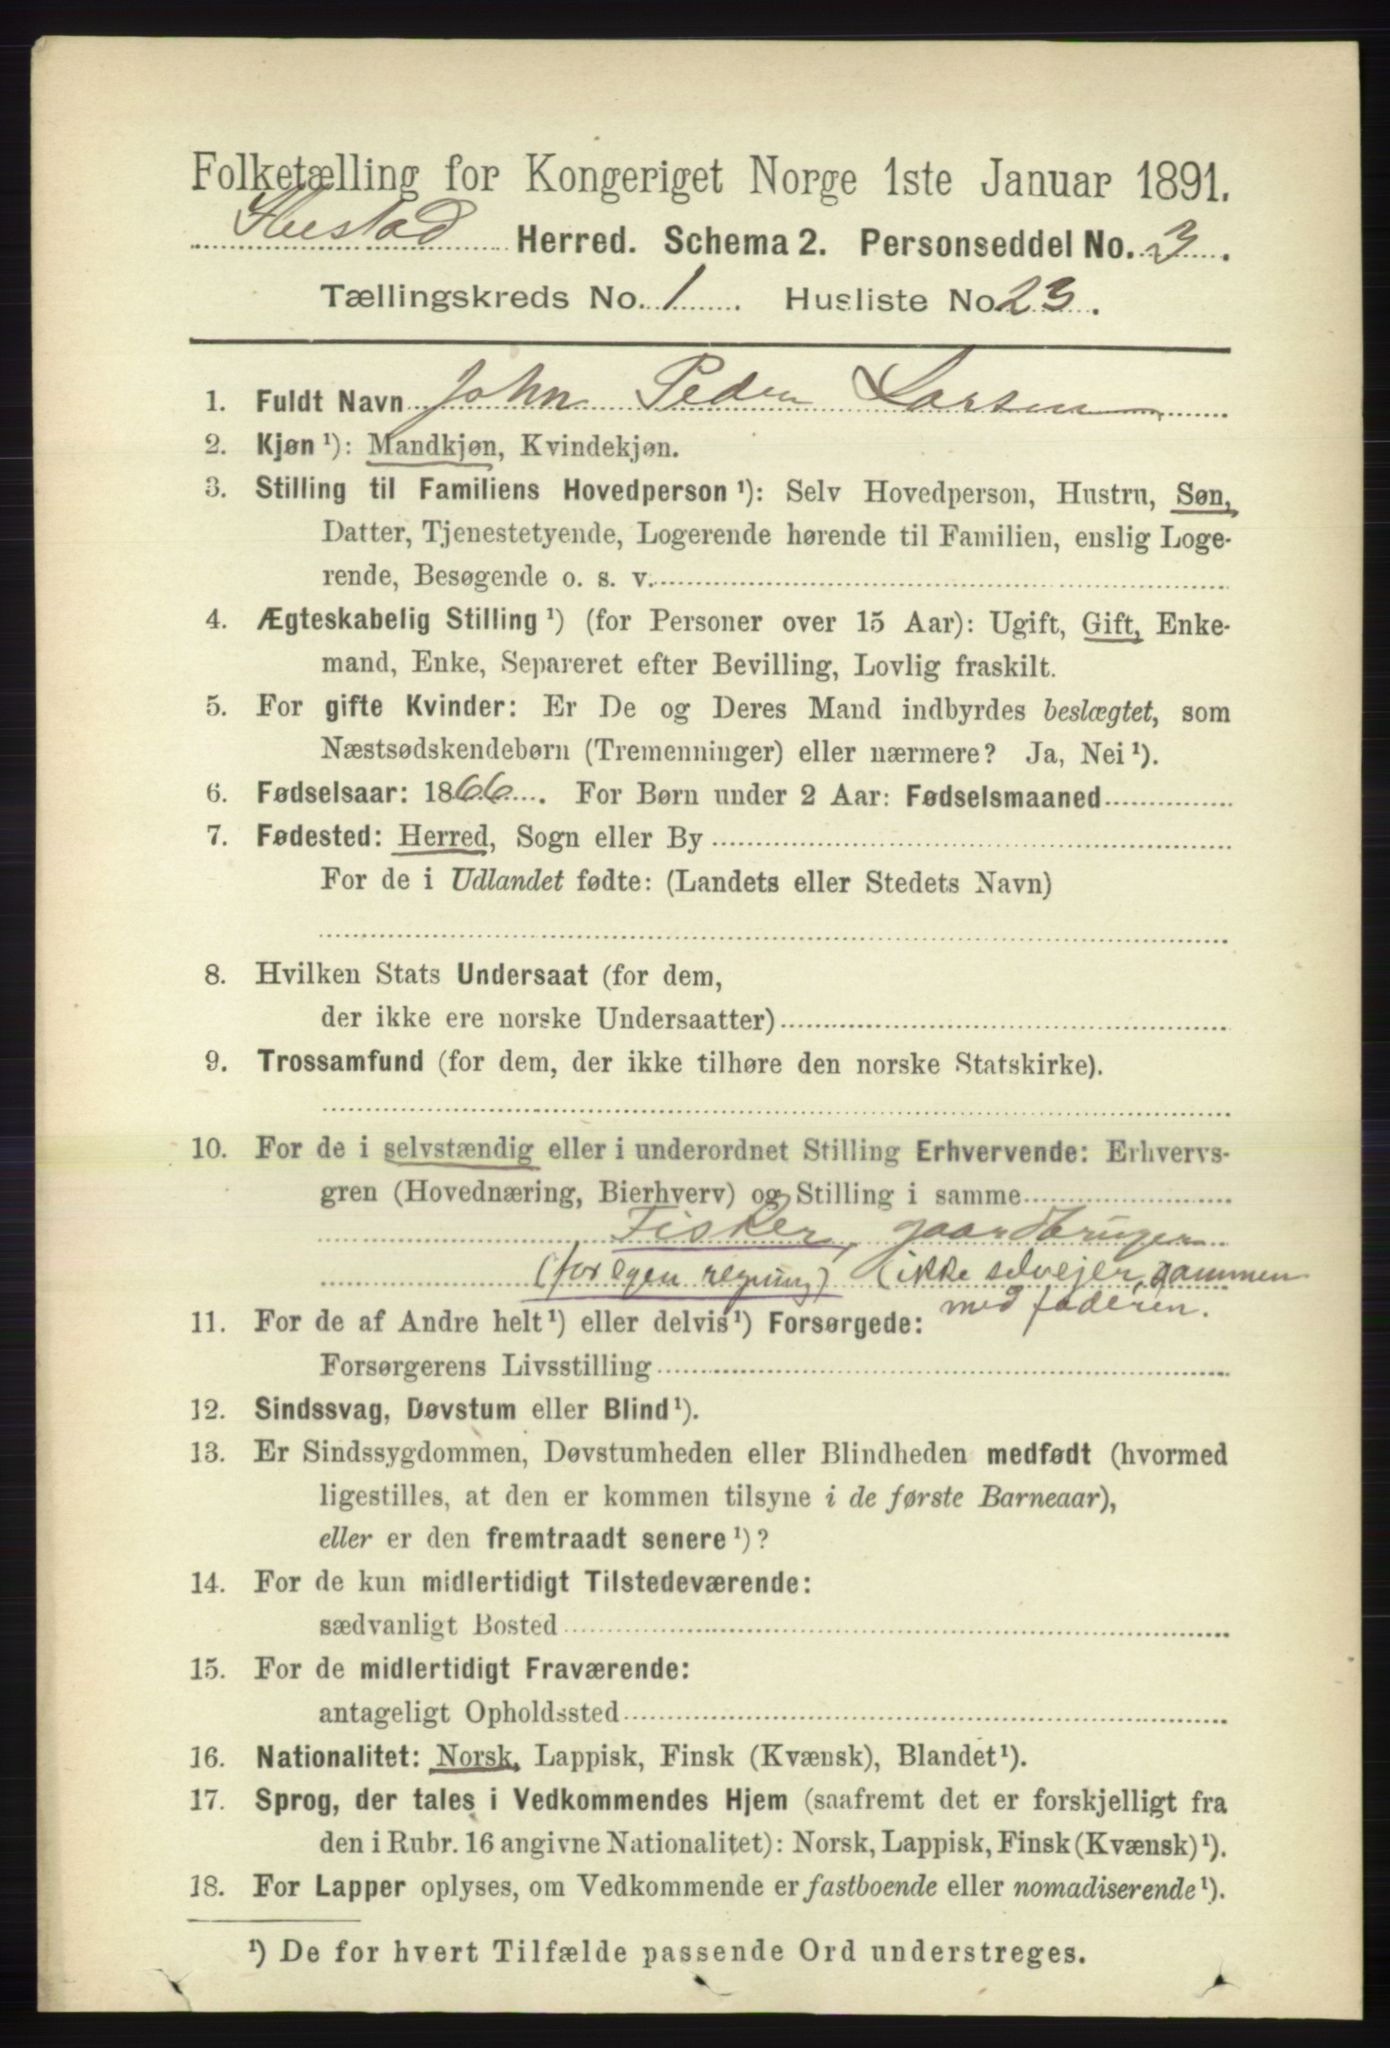 Folketælling for Kongeriget Norge 1ste Januar 1891.
Hustad Herred. Schema 2. Personseddel No. 3.
Tællingskreds No. 1. Husliste No. 23.
1. Fuldt Navn John Peder Larsen
2. Kjøn ¹): Mandkjøn, Kvindekjøn.
3. Stilling til Familiens Hovedperson ¹): Selv Hovedperson, Hustru, Søn,
Datter, Tjenestetyende, Logerende hørende til Familien, enslig Loge-
rende, Besøgende o. s. v.
4. Ægteskabelig Stilling ¹) (for Personer over 15 Aar): Ugift, Gift, Enke-
mand, Enke, Separeret efter Bevilling, Lovlig fraskilt.
5. For gifte Kvinder: Er De og Deres Mand indbyrdes beslægtet, som
Næstsødskendebørn (Tremenninger) eller nærmere? Ja, Nei ¹).
6. Fødselsaar: 1866. For Børn under 2 Aar: Fødselsmaaned
7. Fødested: Herred, Sogn eller By
For de i Udlandet fødte: (Landets eller Stedets Navn)
8. Hvilken Stats Undersaat (for dem,
der ikke ere norske Undersaatter)
9. Trossamfund (for dem, der ikke tilhøre den norske Statskirke).
10. For de i selvstændig eller i underordnet Stilling Erhvervende: Erhvervs-
gren (Hovednæring, Bierhverv) og Stilling i samme
Fisker, gaardbruger
(for egen regning) (ikke selvejer, sammen
med faderen.
11. For de af Andre helt ¹) eller delvis ¹) Forsørgede:
Forsørgerens Livsstilling
12. Sindssvag, Døvstum eller Blind ¹).
13. Er Sindssygdommen, Døvstumheden eller Blindheden medfødt (hvormed
ligestilles, at den er kommen tilsyne i de første Barneaar),
eller er den fremtraadt senere ¹)?
14. For de kun midlertidigt Tilstedeværende:
sædvanligt Bosted
15. For de midlertidigt Fraværende:
antageligt Opholdssted
16. Nationalitet: Norsk, Lappisk, Finsk (Kvænsk), Blandet ¹).
17. Sprog, der tales i Vedkommendes Hjem (saafremt det er forskjelligt fra
den i Rubr. 16 angivne Nationalitet): Norsk, Lappisk, Finsk (Kvænsk) ¹).
18. For Lapper oplyses, om Vedkommende er fastboende eller nomadiserende ¹).
¹) De for hvert Tilfælde passende Ord understreges.